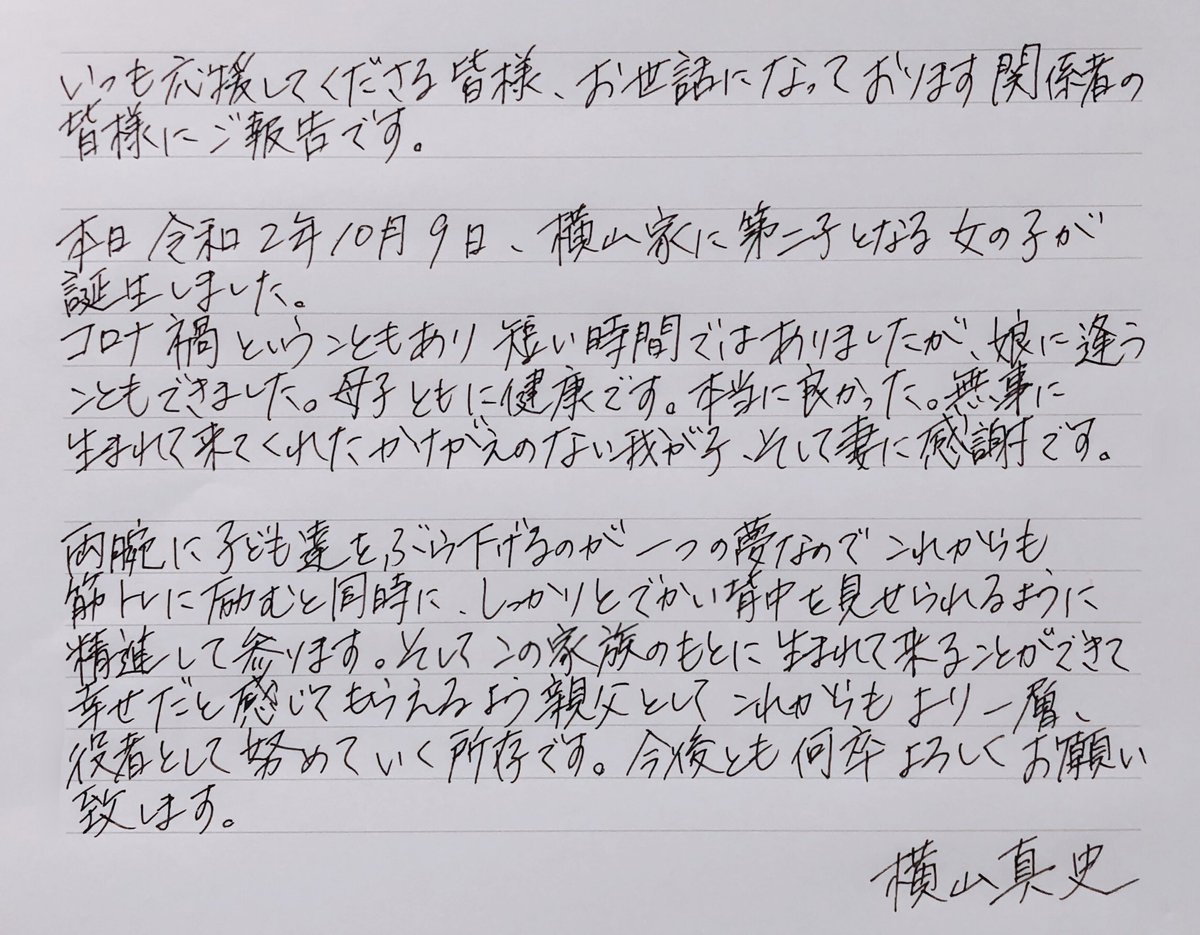 いつも応援してくださる皆様、お世話になっております関係者の
皆様にご報告です。
本日令和2年10月9日、横山家に第二子となる女の子が
誕生しました。
コロナ禍ということもあり短い時間ではありましたが、娘に逢う
こともできました。母子ともに健康です。本当に良かった。無事に
生まれて来てくれたかけがえのない我が子、そして妻に感謝です。
両腕に子ども達をぶら下げるのが一つの夢なのでこれからも
筋トレに励むと同時に、しっかりとでかい背中を見せられるように
精進して参ります。そしてこの家族のもとに生まれて来ることができて
幸せだと感じてもらえるよう親父としてこれからもより一層、
役者として努めていく所存です。今後とも何卒よろしくお願い
致します。
横山真史